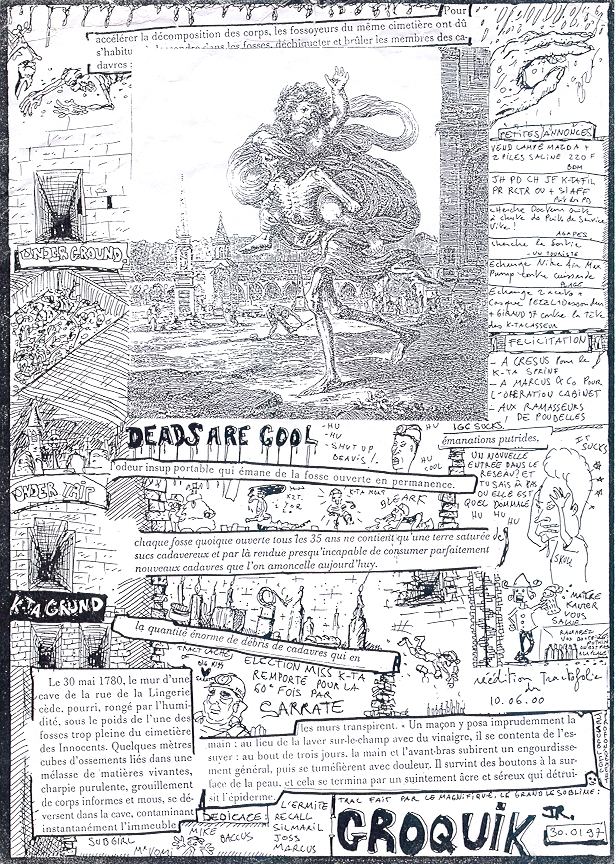 Pour
accélérer la décomposition des corps, les fossoyeurs du même cimetière ont dû
s'habitu
davres :
PETITES ANNONCES
VEND LAMPE MAZDA +
2 PILES SALINE 220 F
BDM
JH PD CH JF K-TAFIL
PR RCTR OU + SI AFF
cherche Docteur suite
à chute de Puits de Service
Vite !
AGAPES
cherche la Sortie
UN TOURISTE
Echange Nike Air Max
Pump contre cuissarde
Echange 2 accus +
casque PETZL
+ GIRAUD 97 contre la tête
des K-TACASSEUR
FELICITATION
- A CRESUS pour le
K-TA SPRINT
- A MARCUS & Co POUR
L'OPERATION CABINET
- AUX RAMASSEURS
DE POUBELLES
UNDER GROUND
DEADS ARE COOL
-HU
-HU
-SHUT UP
BEAVIS !
HU
HU
COOL
IGC SUCKS
émanations putrides,
IT
SUCKS
odeur insupportable qui émane de la fosse ouverte en permanence.
UN NOUVELLE
ENTRÉE DANS LE
RESEAU ! ET
TU SAIS À PAS
OÙ ELLE EST
QUEL DOMMAGE
HU HU
HU
BLEARK
SKULL
chaque fosse quoique ouverte tous les 35 ans ne contient qu'une terre saturée de
sucs cadavereux et par là rendue presqu'incapable de consumer parfaitement
nouveaux cadavres que l'on amoncelle aujourd'huy.
K-TA GRUND
la quantité énorme de débris de cadavres qui en
MAÎTRE
KAVIER
VOUS
SALUE
ELECTION MISS K-TA
REMPORTÉ POUR LA
60e FOIS PAR
SARRATE
réédition Tractofolie
du
10.06.00
Le 30 mai 1780, le mur d'une
cave de la rue de la Lingerie
cède, pourri, rongé par l'humi
dité, sous le poids de l'une des
fosses trop pleine du cimetière
des Innocents. Quelques mètres
cubes d'ossements liés dans une
mélasse de matières vivantes,
charpie purulente, grouillement
de corps informes et mous, se dé-
versent dans la cave, contaminant
instantanément l'immeuble
les murs transpirent. « Un maçon y posa imprudemment la
main : au lieu de la laver sur-le-champ avec du vinaigre, il se contenta de l'es-
suyer : au bout de trois jours, la main et l'avant-bras subirent un engourdisse-
ment général, puis se tuméfièrent avec douleur. Il survint des boutons à la sur-
face de la peau, et cela se termina par un suintement âcre et séreux qui détrui-
sit l'épiderme.
TRAC FAIT PAR LE MAGNIFIQUE, LE GRAND LE SUBLIME :
DEDICACE :
L'ERMITE
RECALL
SILMARIL
JOSS
MARCUS
MIKE
BACCUS
SUBGIRL
Mr VOMI
GROQUIK JR.
30.01.97